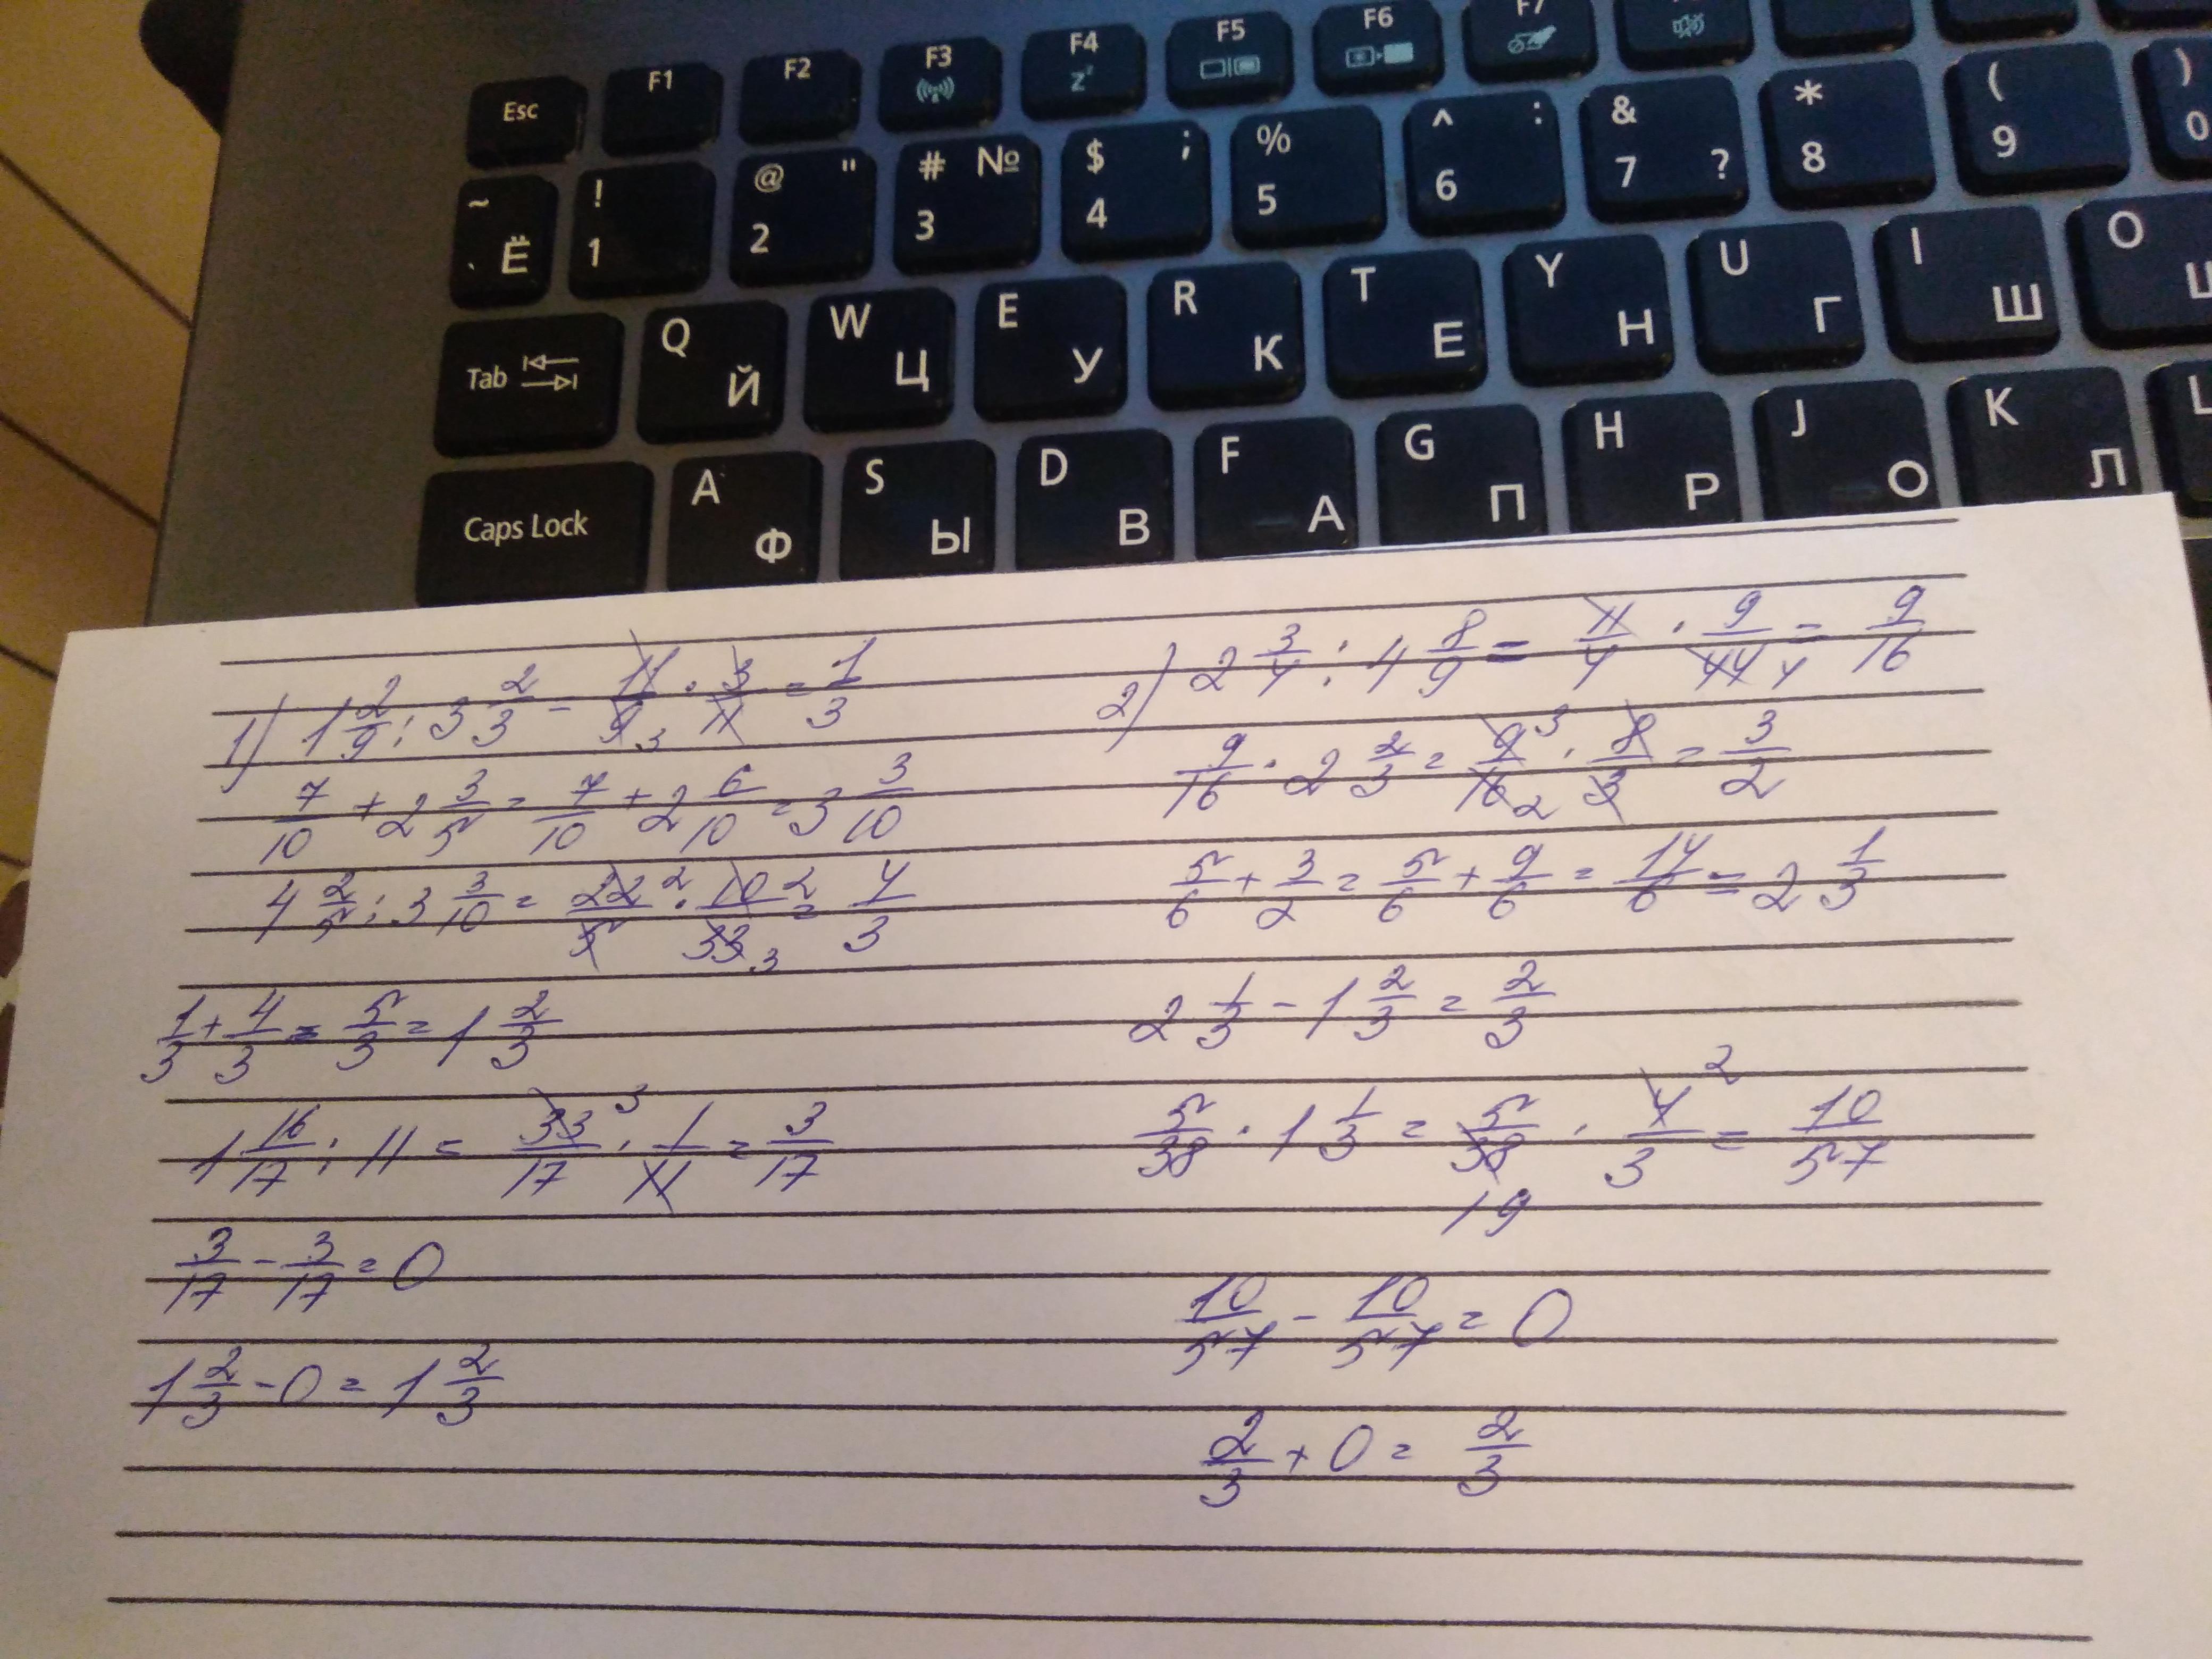 Esc F1 F2 F3 F4 F5 F6 F7
z^z
~ Ё ! 1 @ " 2 # № 3 $ ; 4 % 5 ^ : 6 & 7 ? * 8 ( 9 ) 0
Tab Q Й W Ц E У R К T Е Y Н U Г I Ш O
Caps Lock A Ф S Ы D В F А G П H Р J О K Л L
1) 1 2/9 : 3 2/3 = 11/9 3 · 3/11 = 1/3
7/10 + 2 3/5 = 7/10 + 2 6/10 = 3 3/10
4 2/5 : 3 3/10 = 22/5 2 · 10/33 2 3 = 4/3
1/3 + 4/3 = 5/3 = 1 2/3
1 16/17 : 11 = 33/17 3 · 1/11 = 3/17
3/17 - 3/17 = 0
1 2/3 - 0 = 1 2/3
2) 2 3/4 : 4 8/9 = 11/4 · 9/44 4 = 9/16
9/16 · 2 2/3 = 9/16 3 2 · 8/3 = 3/2
5/6 + 3/2 = 5/6 + 9/6 = 14/6 = 2 1/3
2 1/3 - 1 2/3 = 2/3
5/38 · 1 1/3 = 5/38 19 · 4/3 2 = 10/57
10/57 - 10/57 = 0
2/3 + 0 = 2/3